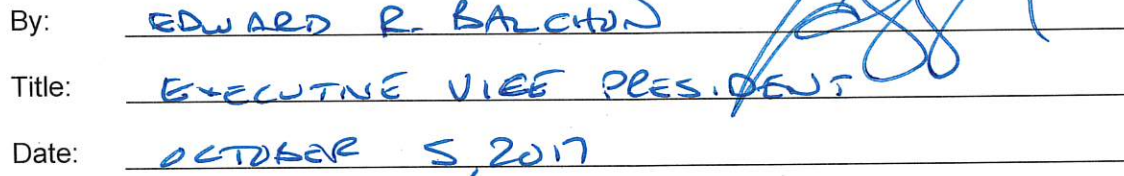 By: EDWARD R. BALCHUN
Title: EXECUTIVE VICE PRESIDENT
Date: OCTOBER 5, 2017